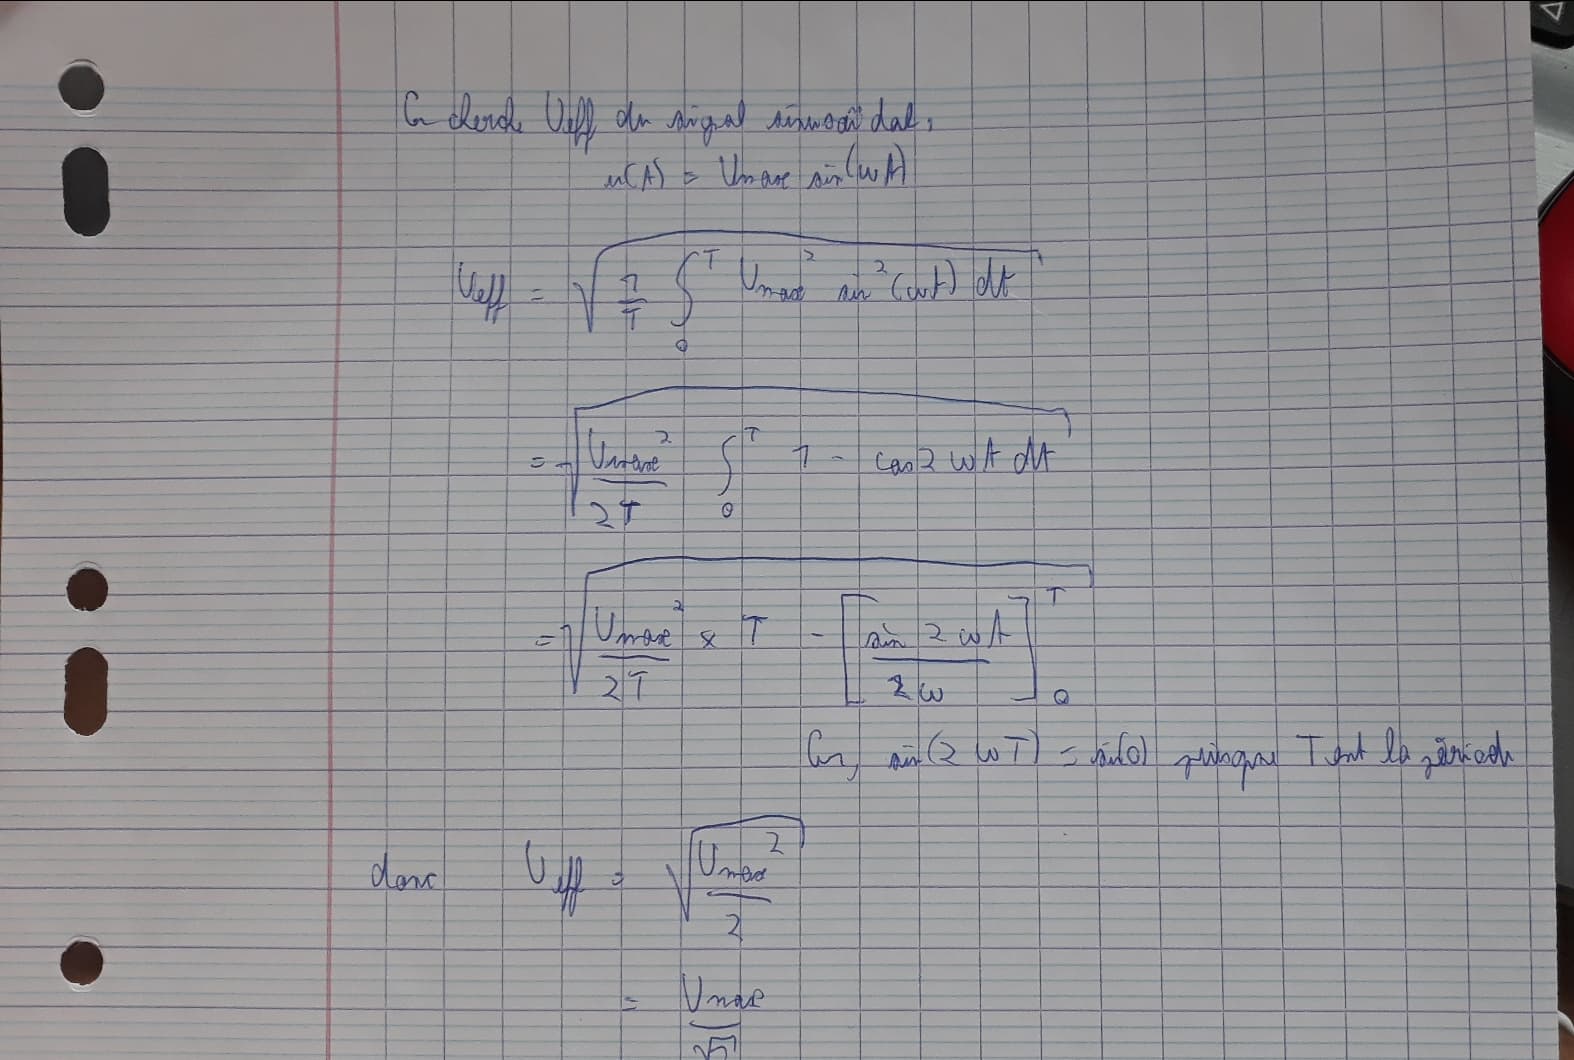 On cherche Ueff du signal sinusoïdal,
u(t) = Umax sin(ωt)
Ueff = √(1/T ∫₀ᵀ Umax² sin²(ωt) dt)
= √(Umax²/2T ∫₀ᵀ 1 - cos2ωt dt)
= √(Umax²/2T × T - [sin 2ωt/2ω]₀ᵀ)
Or, sin(2ωT) = sin(0) puisque T est la période
donc Ueff = √(Umax²/2)
= Umax/√